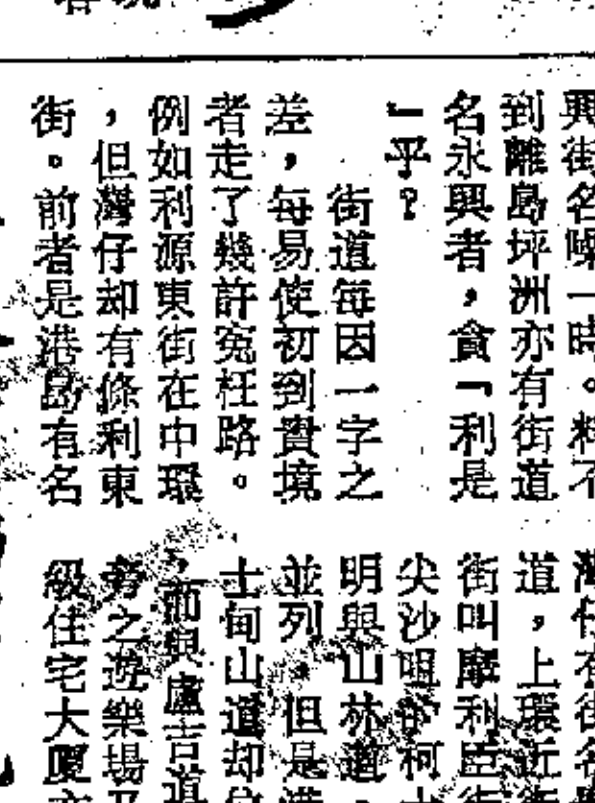 興街名噪一時。料不
到離島坪洲亦有街道
名永興者，貪「利是
」乎？
街道每因一字之
差，每易使初到貴境
者走了幾許冤枉路。
例如利源東街在中環
，但灣仔却有條利東
街。前者是港島有名
灣仔有街名
道，上環近
街叫摩利臣街
尖沙咀的柯士
明與山林道
並列，但是
士甸山道却
，而與盧吉道
旁之遊樂場
級住宅大厦